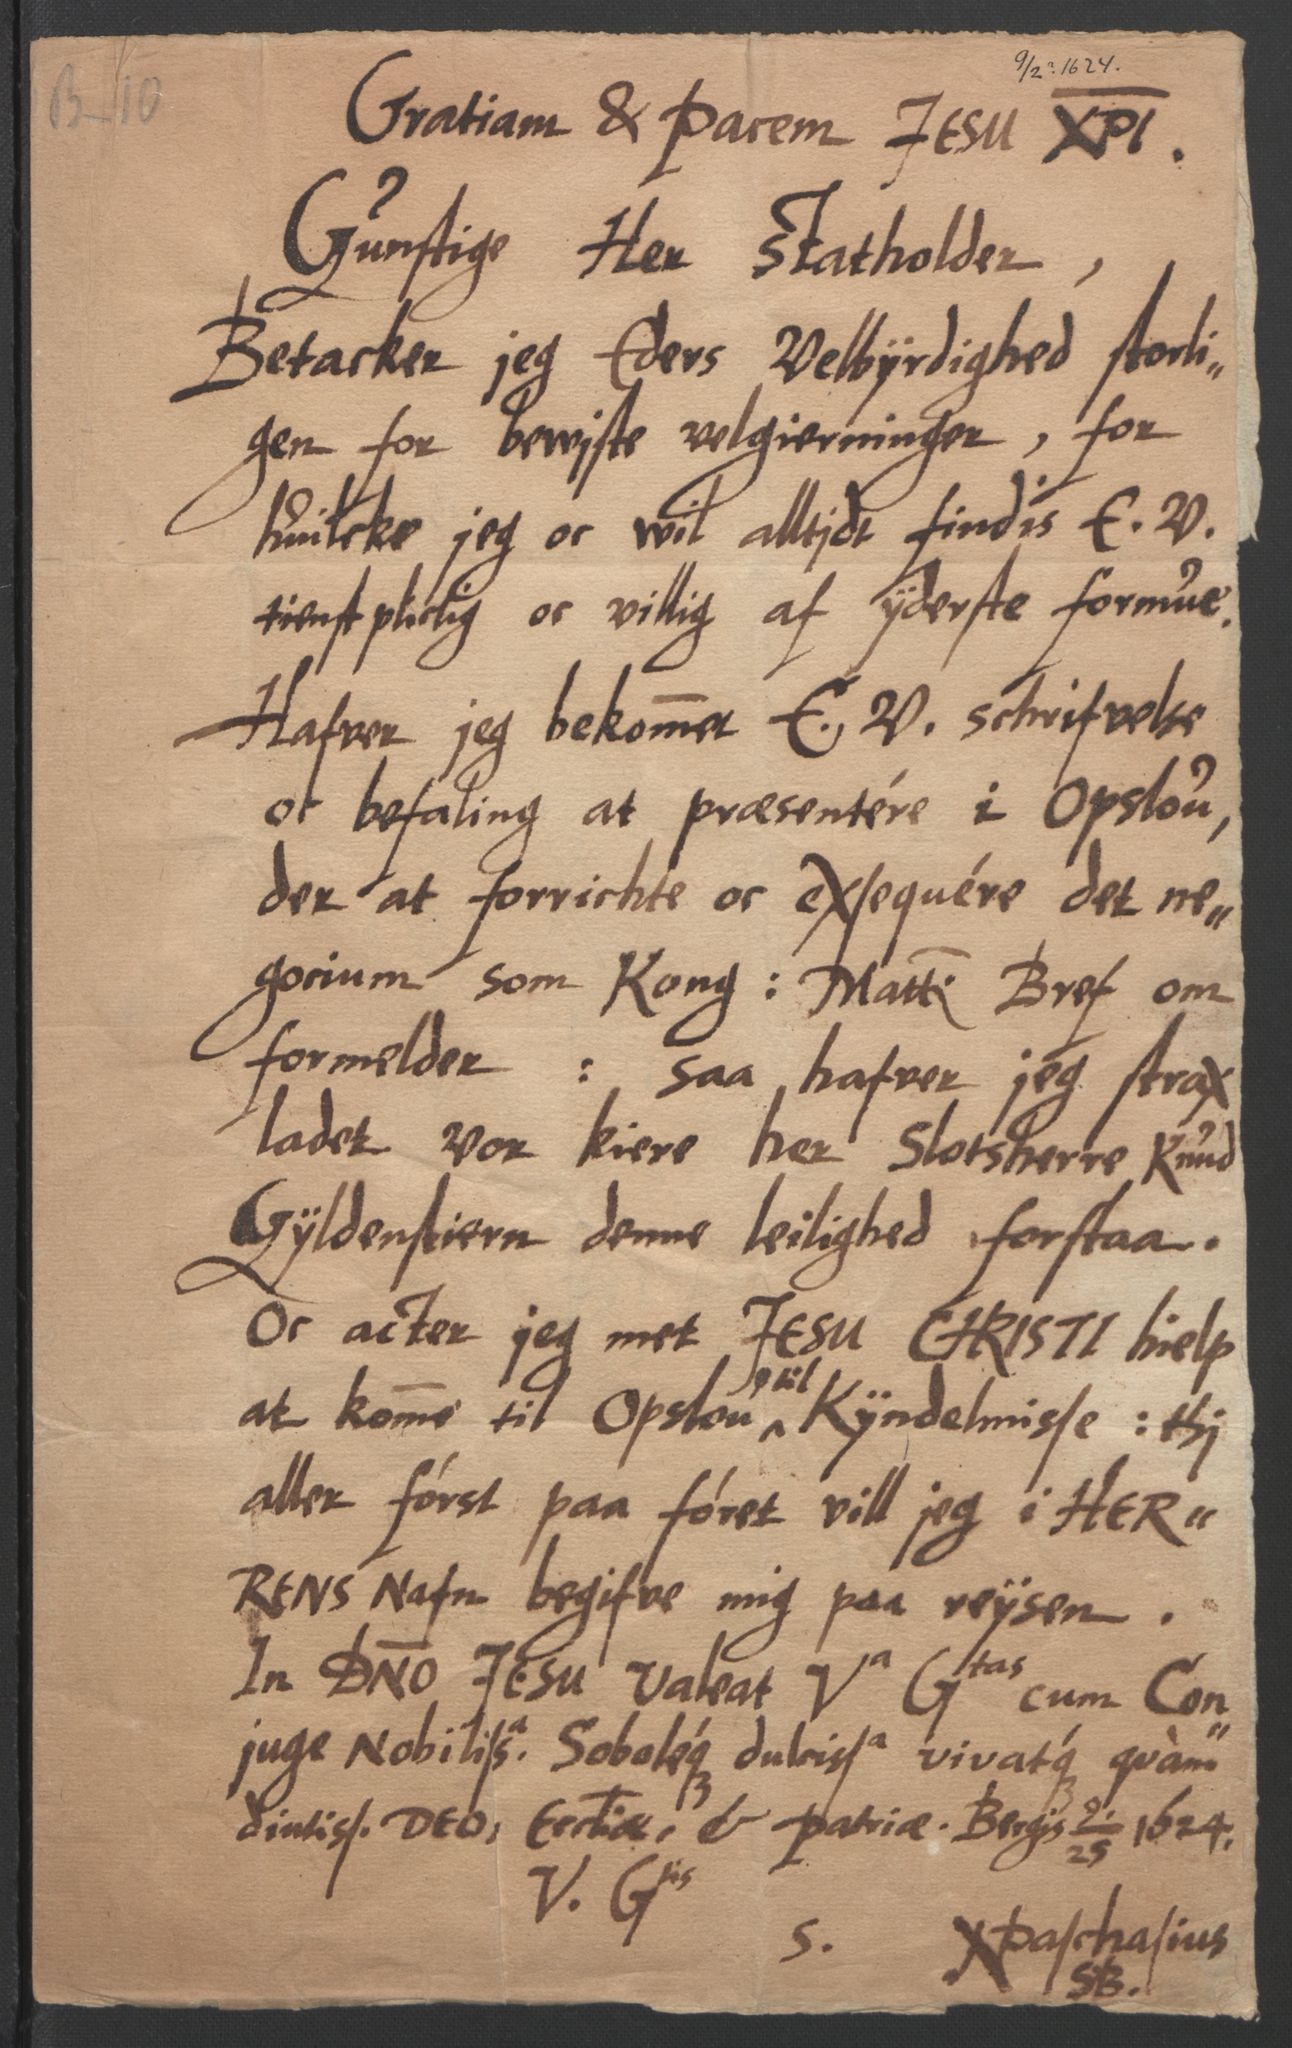 9/2? 1624.
B 10
Gratiam & pacem JESU XPI.
Gunstige Her Statholder,
Betacker jeg Eders Velbÿrdighed storli„
gen for bewjste velgierninger, for
huilcke jeg oc wil alltjdt findis E. V.
tienstplictig oc villig af ÿderste formue.
Hafver jeg bekom̅et E. V. schrifvelse
oc befaling at præsentére i Opslou,
der at forrichte oc exseqvére det ne„
gocium som Kong: Matti̅ Bref om
formelder : saa hafver jeg strax
ladet vor kiere her Slotsherre Knud
Gÿldenstiern denne leilighed forstaa.
Oc acter jeg met JESU CHRISTI hielp
at kom̅e til Opslou ^ til Kÿndelmisse : thj
aller fórst paa fóret vill jeg i HER„
RENS Nafn begifve mig paa reÿsen.
In DN̅O JESU valeat Va Gtas cum Con„
juge Nobiliss.a Soboléq dulciss.a vivatq́ qvàm
diutiss. DEO, Eccliæ, & patriæ. Bergis 9/25 1624.
V. Gtis
S. XPaschasius
SB.